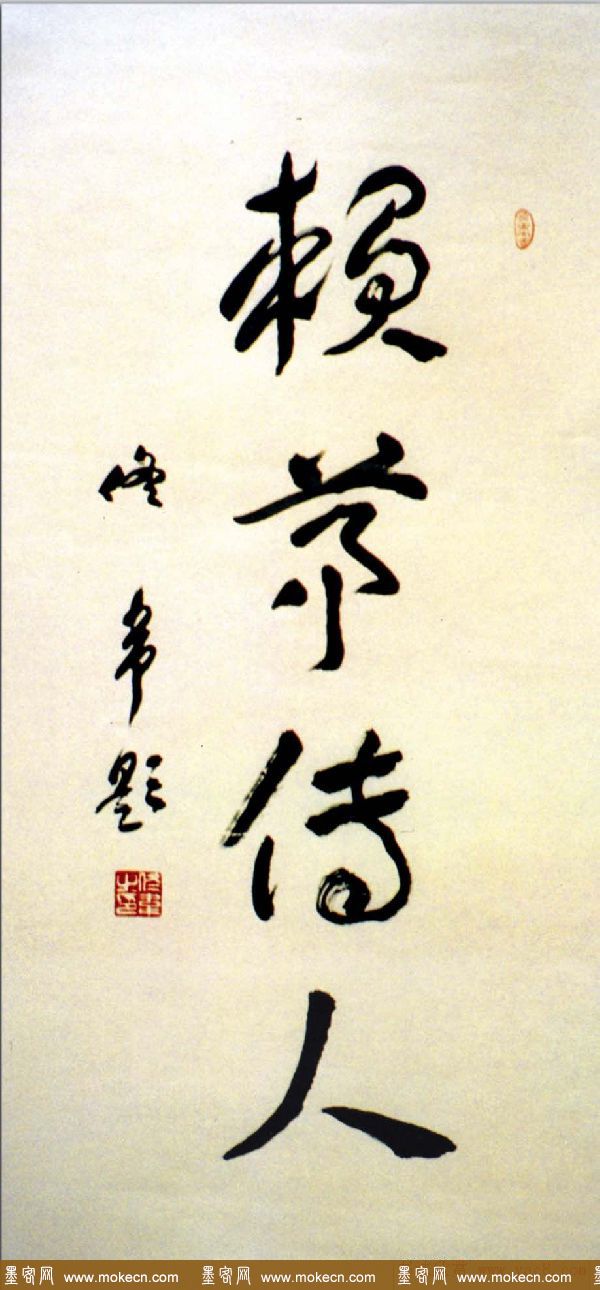 賴茅傳人
佟韋題
墨客网 www.mokecn.com 墨客网 www.mokecn.com 墨客网 www.mokecn.com